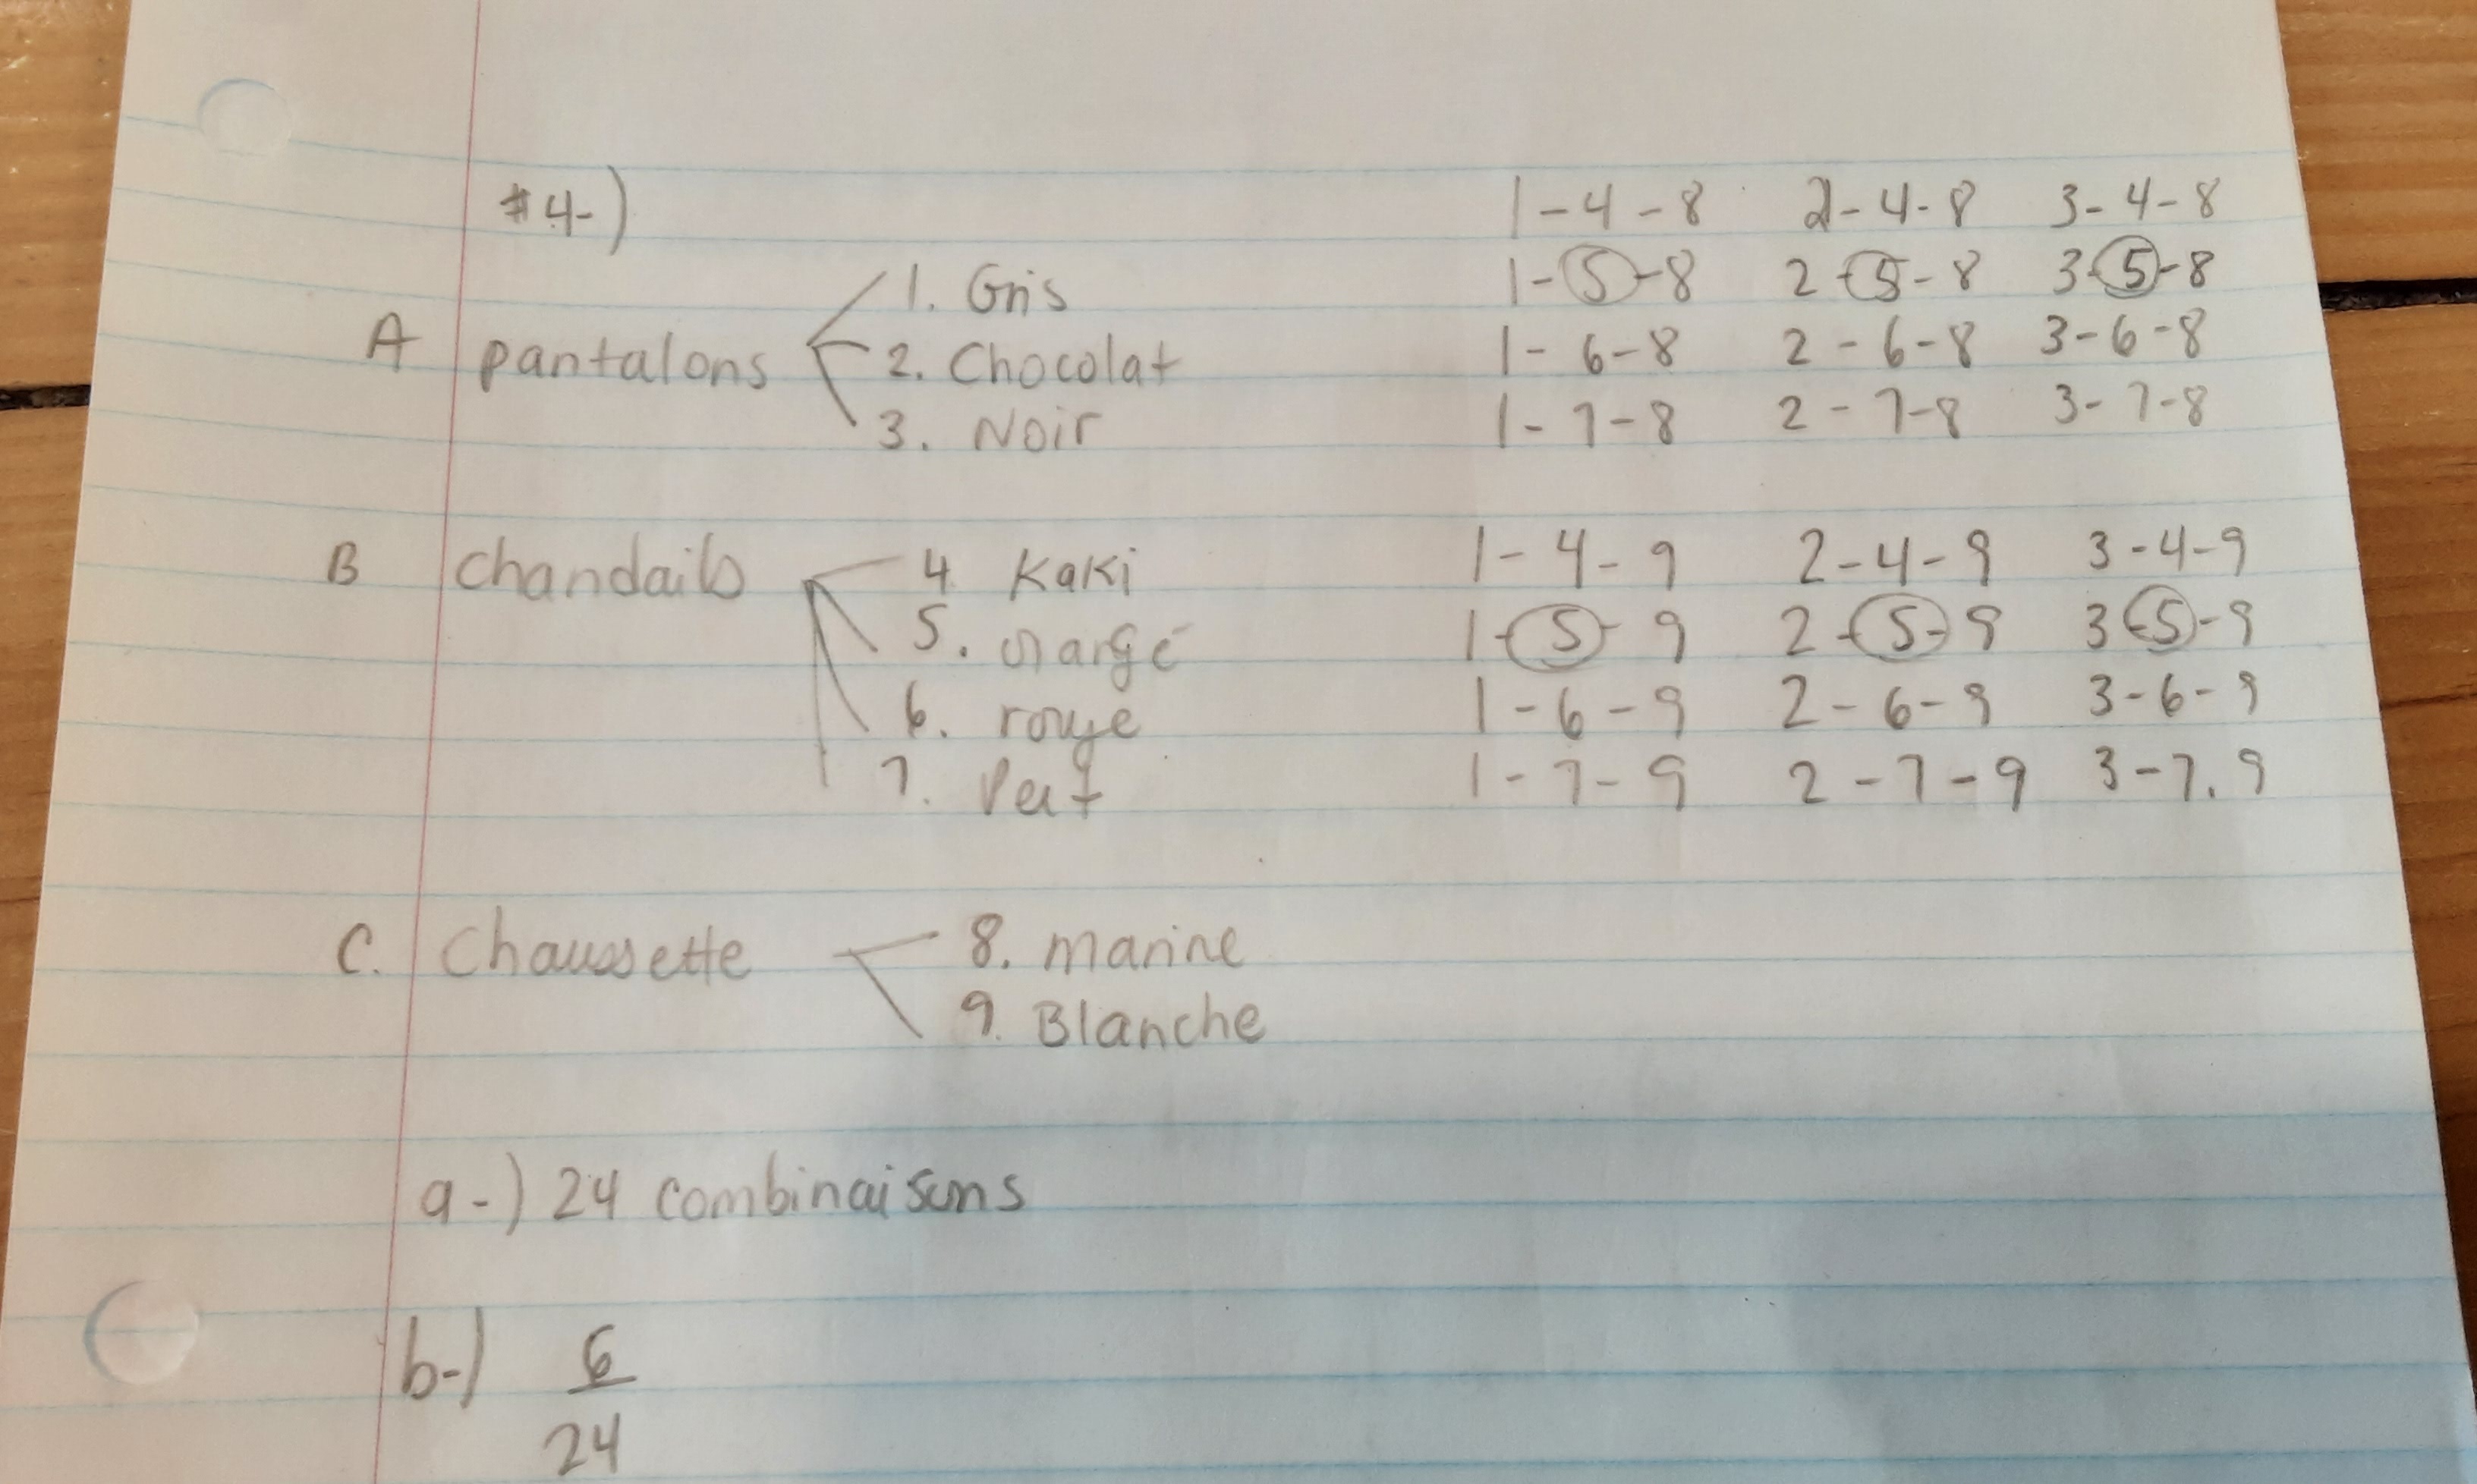 #4-)
A pantalons 1. Gris
2. Chocolat
3. Noir
B chandails 4 Kaki
5. orange
6. rouge
7. Vert
C. Chaussette 8. marine
9. Blanche
1-4-8 2-4-8 3-4-8
1-5-8 2-5-8 3-5-8
1-6-8 2-6-8 3-6-8
1-7-8 2-7-8 3-7-8
1-4-9 2-4-9 3-4-9
1-5-9 2-5-9 3-5-9
1-6-9 2-6-9 3-6-9
1-7-9 2-7-9 3-7.9
a-) 24 combinaisons
b-) 6
24